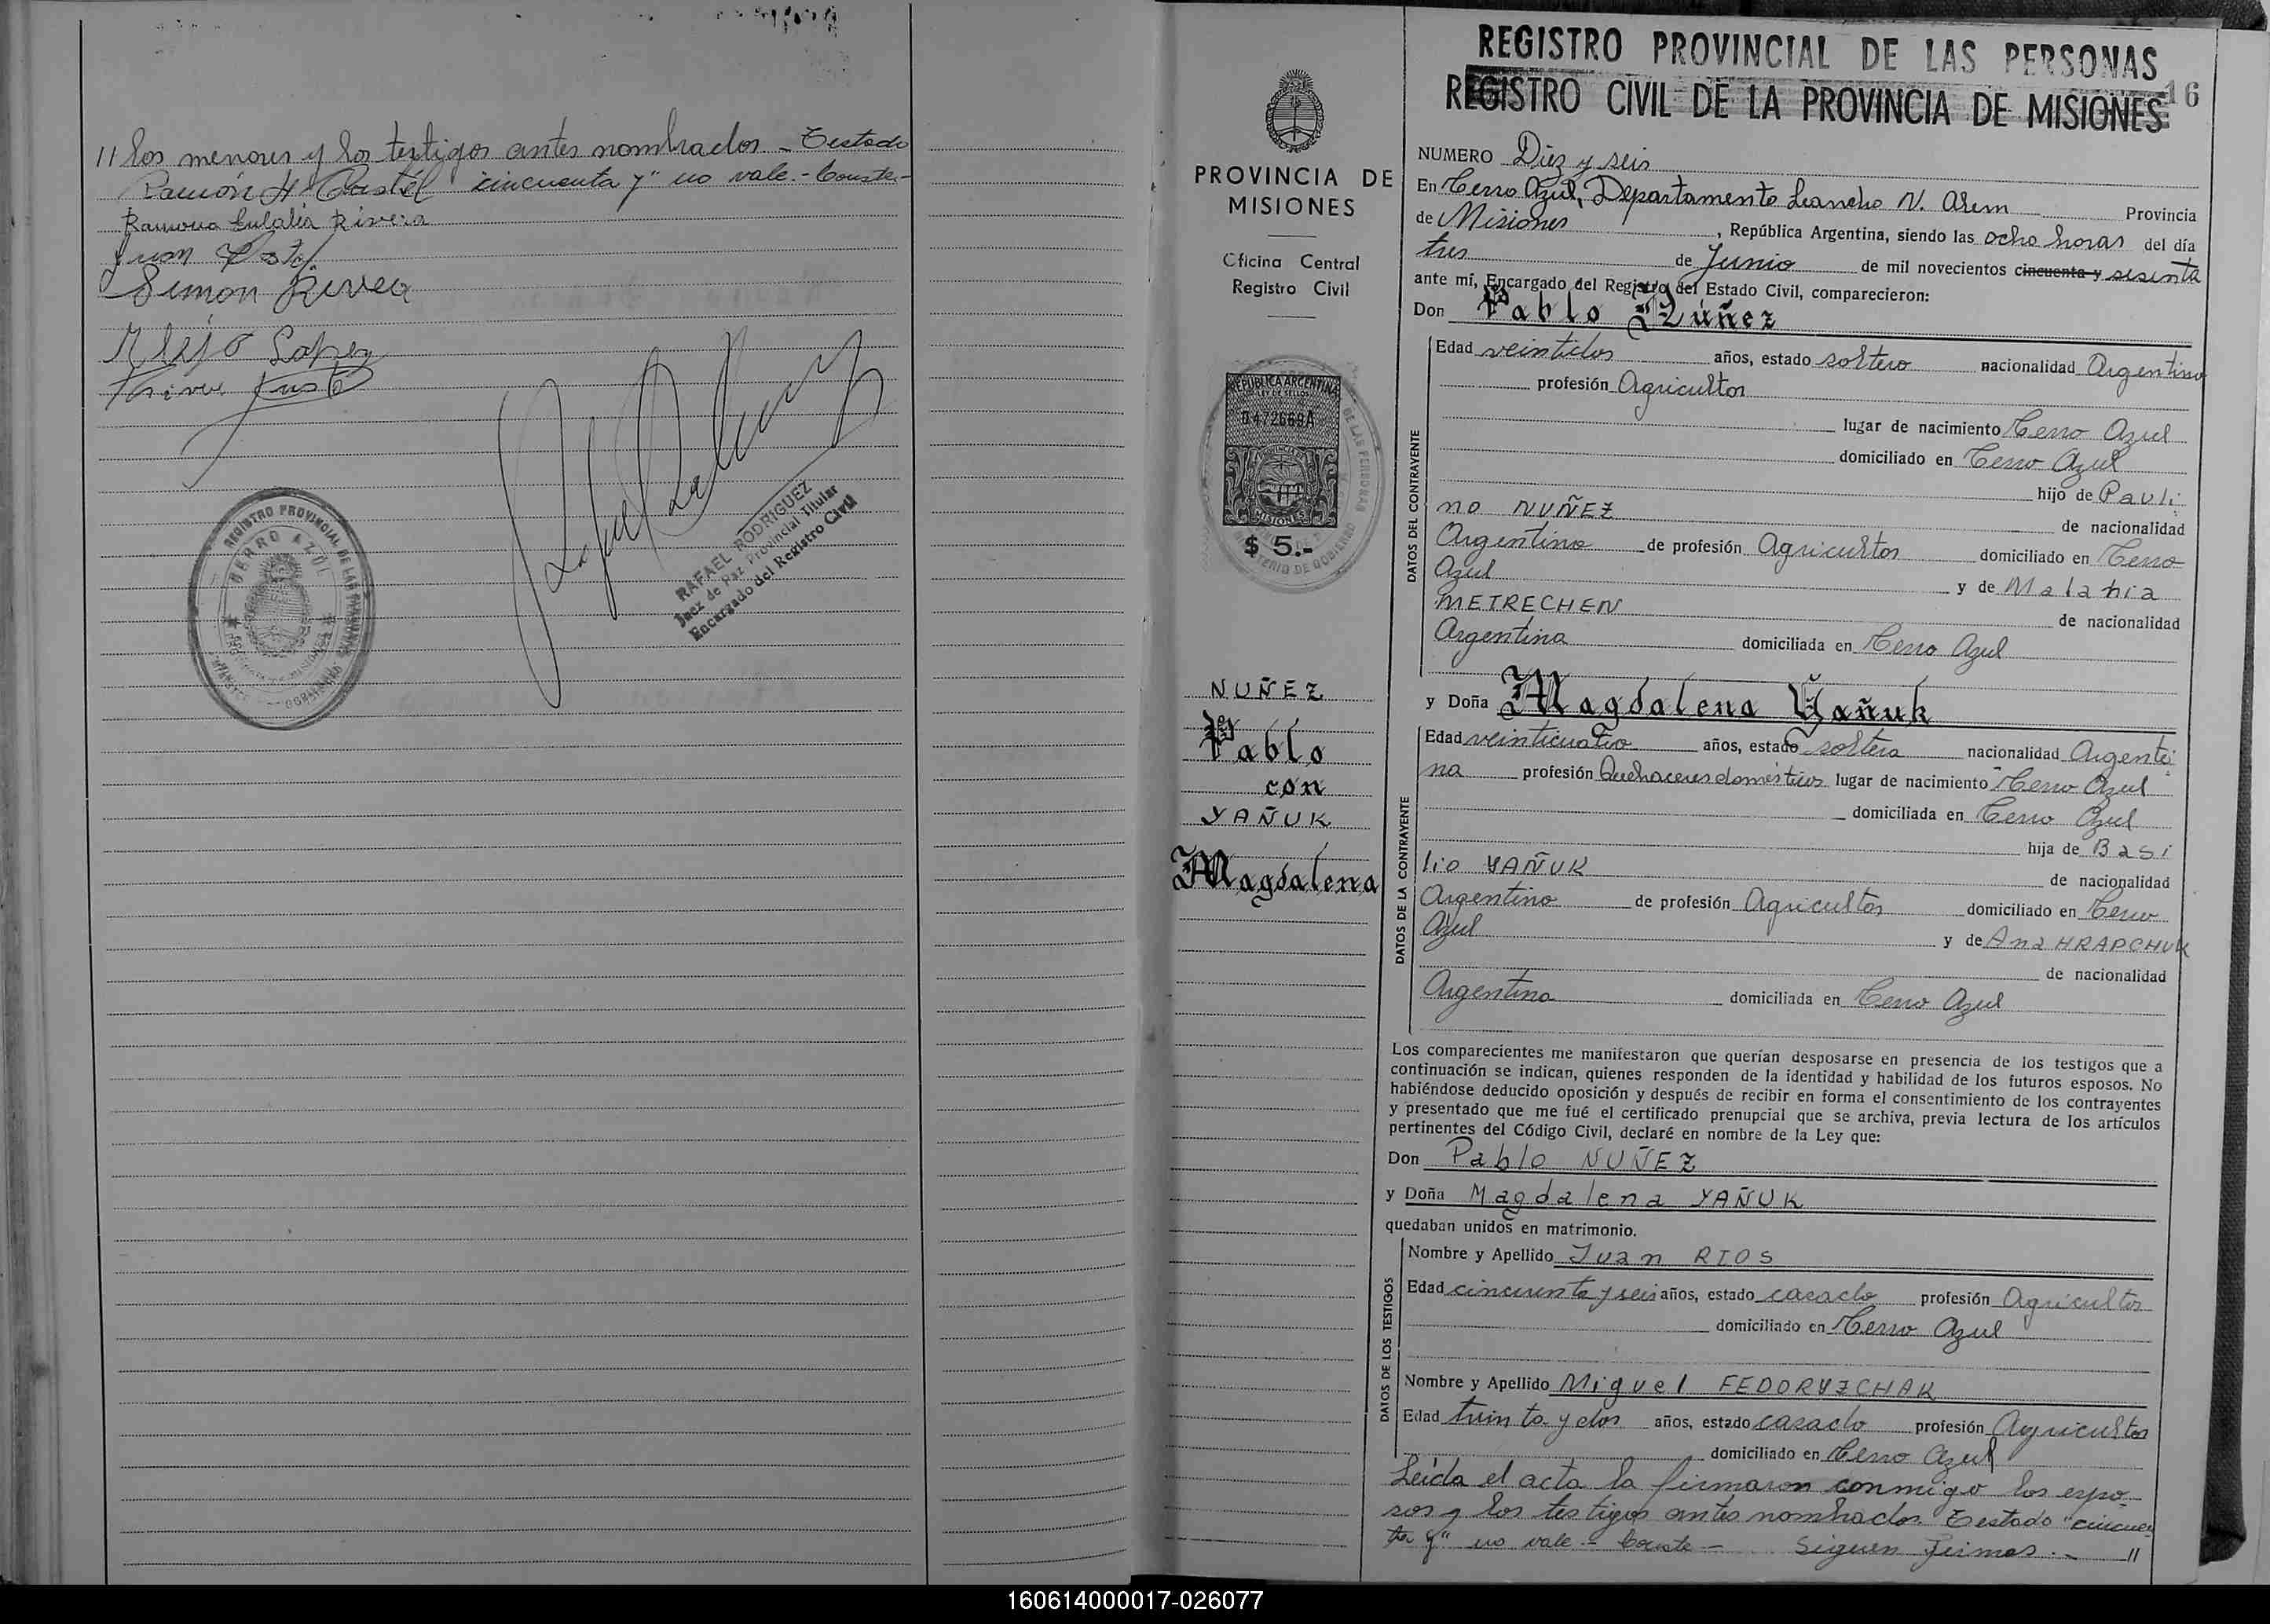 // los menores y los testigos antes nombrados - Testado
Ramón H. Castel "cincuenta y" no vale.- Conste.-
Ramona Eulalia Rivera
Juan
Simon Rivera
Alejo Lopez
Justo
REGISTRO PROVINCIAL DE LAS PERSONAS
CERRO AZUL
RAFAEL RODRIGUEZ
Juez de Paz Provincial Titular
Encargado del Registro Civil
PROVINCIA DE
MISIONES
Oficina Central
Registro Civil
REPUBLICA ARGENTINA
LEY DE SELLOS
0472669A
PROVINCIA DE
MISIONES
$ 5.-
NUÑEZ
Pablo
con
YAÑUK
Magdalena
REGISTRO PROVINCIAL DE LAS PERSONAS
REGISTRO CIVIL DE LA PROVINCIA DE MISIONES 16
NUMERO Diez y seis
En Cerro Azul, Departamento Leandro N. Alem Provincia
de Misiones, República Argentina, siendo las ocho horas del día
tres de Junio de mil novecientos cincuenta y sesenta
ante mí, Encargado del Registro del Estado Civil, comparecieron:
Don Pablo Núñez
DATOS DEL CONTRAYENTE
Edad veintidos años, estado soltero nacionalidad Argentino
profesión Agricultor
lugar de nacimiento Cerro Azul
domiciliado en Cerro Azul
hijo de Pauli
no NUÑEZ de nacionalidad
Argentino de profesión Agricultor domiciliado en Cerro
Azul y de Malania
METRECHEN de nacionalidad
Argentina domiciliada en Cerro Azul
y Doña Magdalena Yañuk
DATOS DE LA CONTRAYENTE
Edad veinticuatro años, estado soltera nacionalidad Argenti
na profesión Quehaceres domésticos lugar de nacimiento Cerro Azul
domiciliada en Cerro Azul
hija de Basi
lio YAÑUK de nacionalidad
Argentino de profesión Agricultor domiciliado en Cerro
Azul y de Ana HRAPCHUK
de nacionalidad
Argentina domiciliada en Cerro Azul
Los comparecientes me manifestaron que querían desposarse en presencia de los testigos que a
continuación se indican, quienes responden de la identidad y habilidad de los futuros esposos. No
habiéndose deducido oposición y después de recibir en forma el consentimiento de los contrayentes
y presentado que me fué el certificado prenupcial que se archiva, previa lectura de los artículos
pertinentes del Código Civil, declaré en nombre de la Ley que:
Don Pablo NUÑEZ
y Doña Magdalena YAÑUK
quedaban unidos en matrimonio.
DATOS DE LOS TESTIGOS
Nombre y Apellido Juan RIOS
Edad cincuenta y seis años, estado casado profesión Agricultor
domiciliado en Cerro Azul
Nombre y Apellido Miguel FEDORYZCHAK
Edad treinta y dos años, estado casado profesión Agricultor
domiciliado en Cerro Azul
Leída el acta la firmaron conmigo los espo-
sos y los testigos antes nombrados. Testado "cincuen
ta y" no vale.- Conste- Siguen firmas.- //
160614000017-026077